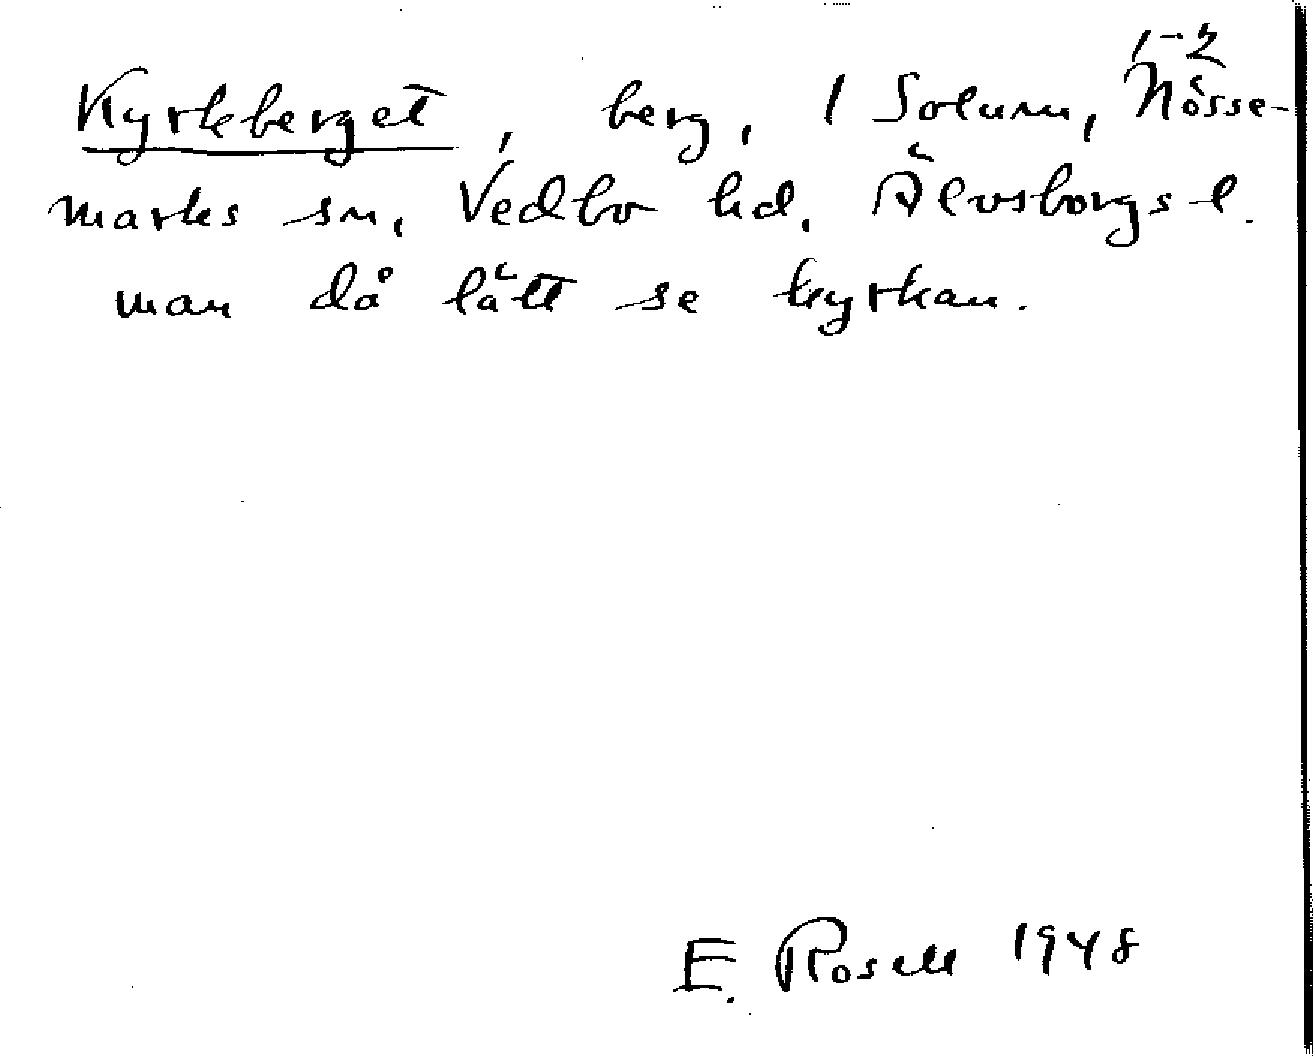 1-2
Kyrkberget, berg, 1 Solum, Nösse-
marks sn, Vedbo hd, Älvsborgs l.
man då lätt se kyrkan.
E. Rosell 1948